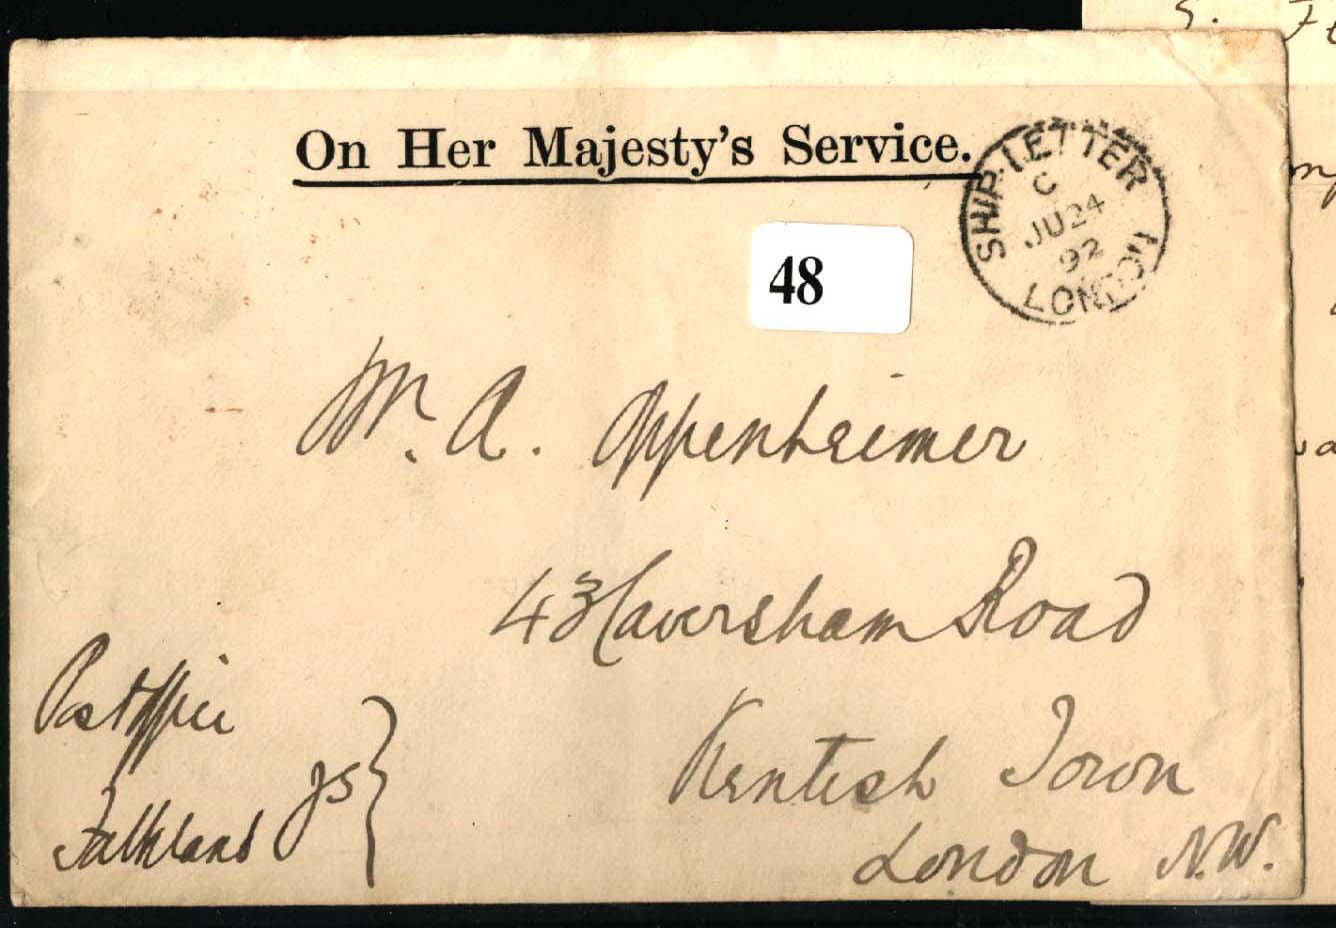 On Her Majesty's Service.
SHIP LETTER LONDON
C
JU 24
92
48
Mr. A. Oppenheimer
43 Caversham Road
Kentish Town
London N.W.
Post Office
Falkland Js